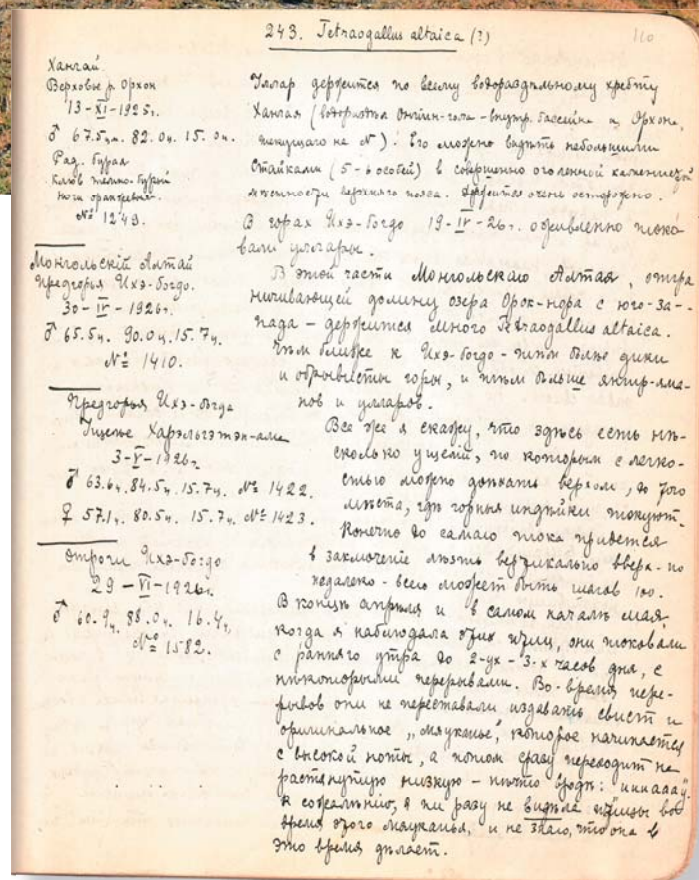 243. Tetraogallus altaica (?)
110
Хангай
Верховье р. Орхон
13-XI-1925г.
♂ 67.5ч. 82.0ч. 15.0ч.
Рад. бурая
Клюв темно-бурый
ноги оранжевыя.
№ 1249.
Монгольскій Алтай
Предгорья Ихэ-Богдо.
30-IV-1926г.
♂ 65.5ч. 90.0ч. 15.7ч.
№ 1410.
Предгорья Ихэ-Богдо
Ущелье Харэльгэтэн-ама
3-V-1926г.
♂ 63.6ч. 84.5ч. 15.7ч. № 1422.
♀ 57.1ч. 80.5ч. 15.7ч. № 1423.
Отроги Ихэ-Богдо
29-VI-1926г.
♂ 60.9ч. 88.0ч. 16.4ч.
№ 1582.
Уллар держится по всему водораздѣльному хребту
Хангая (водораздѣл Онгиин-гола - внутр. бассейна и Орхона,
текущаго на N). Его можно видѣть небольшими
стайками (5-6 особей) в совершенно оголенной каменистой
мѣстности верхняго пояса. Держится очень осторожно.
В горах Ихэ-Богдо 19-IV-26г. оживленно токо-
вали уллары.
В этой части Монгольскаго Алтая, отгра
ничивающей долину озера Орок-нора с юго-за-
пада - держится много Tetraogallus altaica.
Чѣм ближе к Ихэ-Богдо - тѣм болѣе дики
и обрывисты горы, и тѣм больше янгир-яма-
нов и улларов.
Все же я скажу, что здѣсь есть нѣ-
сколько ущелій, по которым с легко-
стью можно доѣхать верхом, до того
мѣста, гдѣ горныя индѣйки токуют.
Конечно до самаго тока придется
в заключеніе лѣзть вертикально вверх - но
недалеко - всего может быть шагов 100.
В концѣ апрѣля и в самом началѣ мая,
когда я наблюдала этих птиц, они токовали
с ранняго утра до 2-ух - 3-х часов дня, с
нѣкоторыми перерывами. Во-время пере-
рывов они не переставали издавать свист и
оригинальное „мяуканье", которое начинается
с высокой ноты, а потом сразу переходит на
растянутую низкую - нѣчто вродѣ: иииаааУ.
К сожалѣнію, я ни разу не видѣла птицы во
время этого мяуканья, и не знаю, что она в
это время дѣлает.